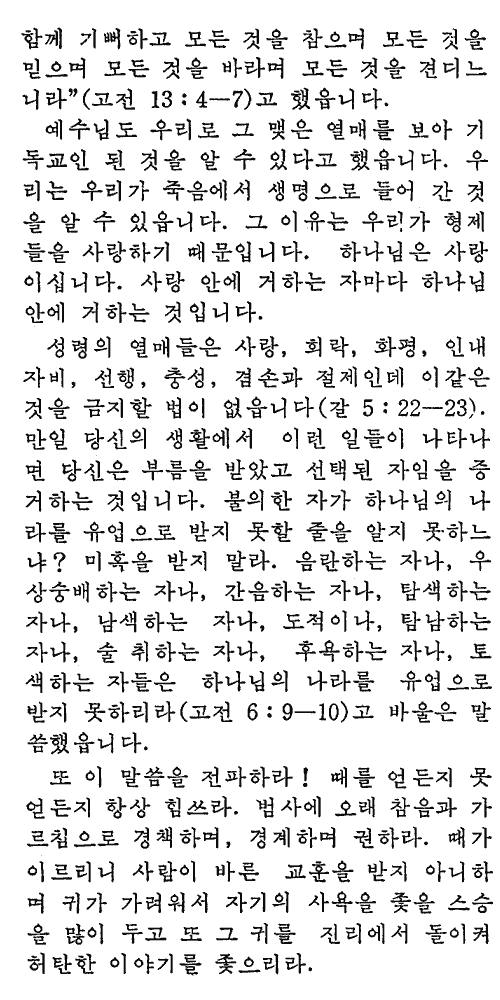 함께 기뻐하고 모든 것을 참으며 모든 것을
믿으며 모든 것을 바라며 모든 것을 견디느
니라”(고전 13：4—7)고 했읍니다.
예수님도 우리로 그 맺은 열매를 보아 기
독교인 된 것을 알 수 있다고 했읍니다. 우
리는 우리가 죽음에서 생명으로 들어 간 것
을 알 수 있읍니다. 그 이유는 우리가 형제
들을 사랑하기 때문입니다. 하나님은 사랑
이십니다. 사랑 안에 거하는 자마다 하나님
안에 거하는 것입니다.
성령의 열매들은 사랑, 희락, 화평, 인내
자비, 선행, 충성, 겸손과 절제인데 이같은
것을 금지할 법이 없읍니다(갈 5：22—23).
만일 당신의 생활에서 이런 일들이 나타나
면 당신은 부름을 받았고 선택된 자임을 증
거하는 것입니다. 불의한 자가 하나님의 나
라를 유업으로 받지 못할 줄을 알지 못하느
냐? 미혹을 받지 말라. 음란하는 자나, 우
상숭배하는 자나, 간음하는 자나, 탐색하는
자나, 남색하는 자나, 도적이나, 탐남하는
자나, 술 취하는 자나, 후욕하는 자나, 토
색하는 자들은 하나님의 나라를 유업으로
받지 못하리라(고전 6：9—10)고 바울은 말
씀했읍니다.
또 이 말씀을 전파하라! 때를 얻든지 못
얻든지 항상 힘쓰라. 범사에 오래 참음과 가
르침으로 경책하며, 경계하며 권하라. 때가
이르리니 사람이 바른 교훈을 받지 아니하
며 귀가 가려워서 자기의 사욕을 좇을 스승
을 많이 두고 또 그 귀를 진리에서 돌이켜
허탄한 이야기를 좇으리라.